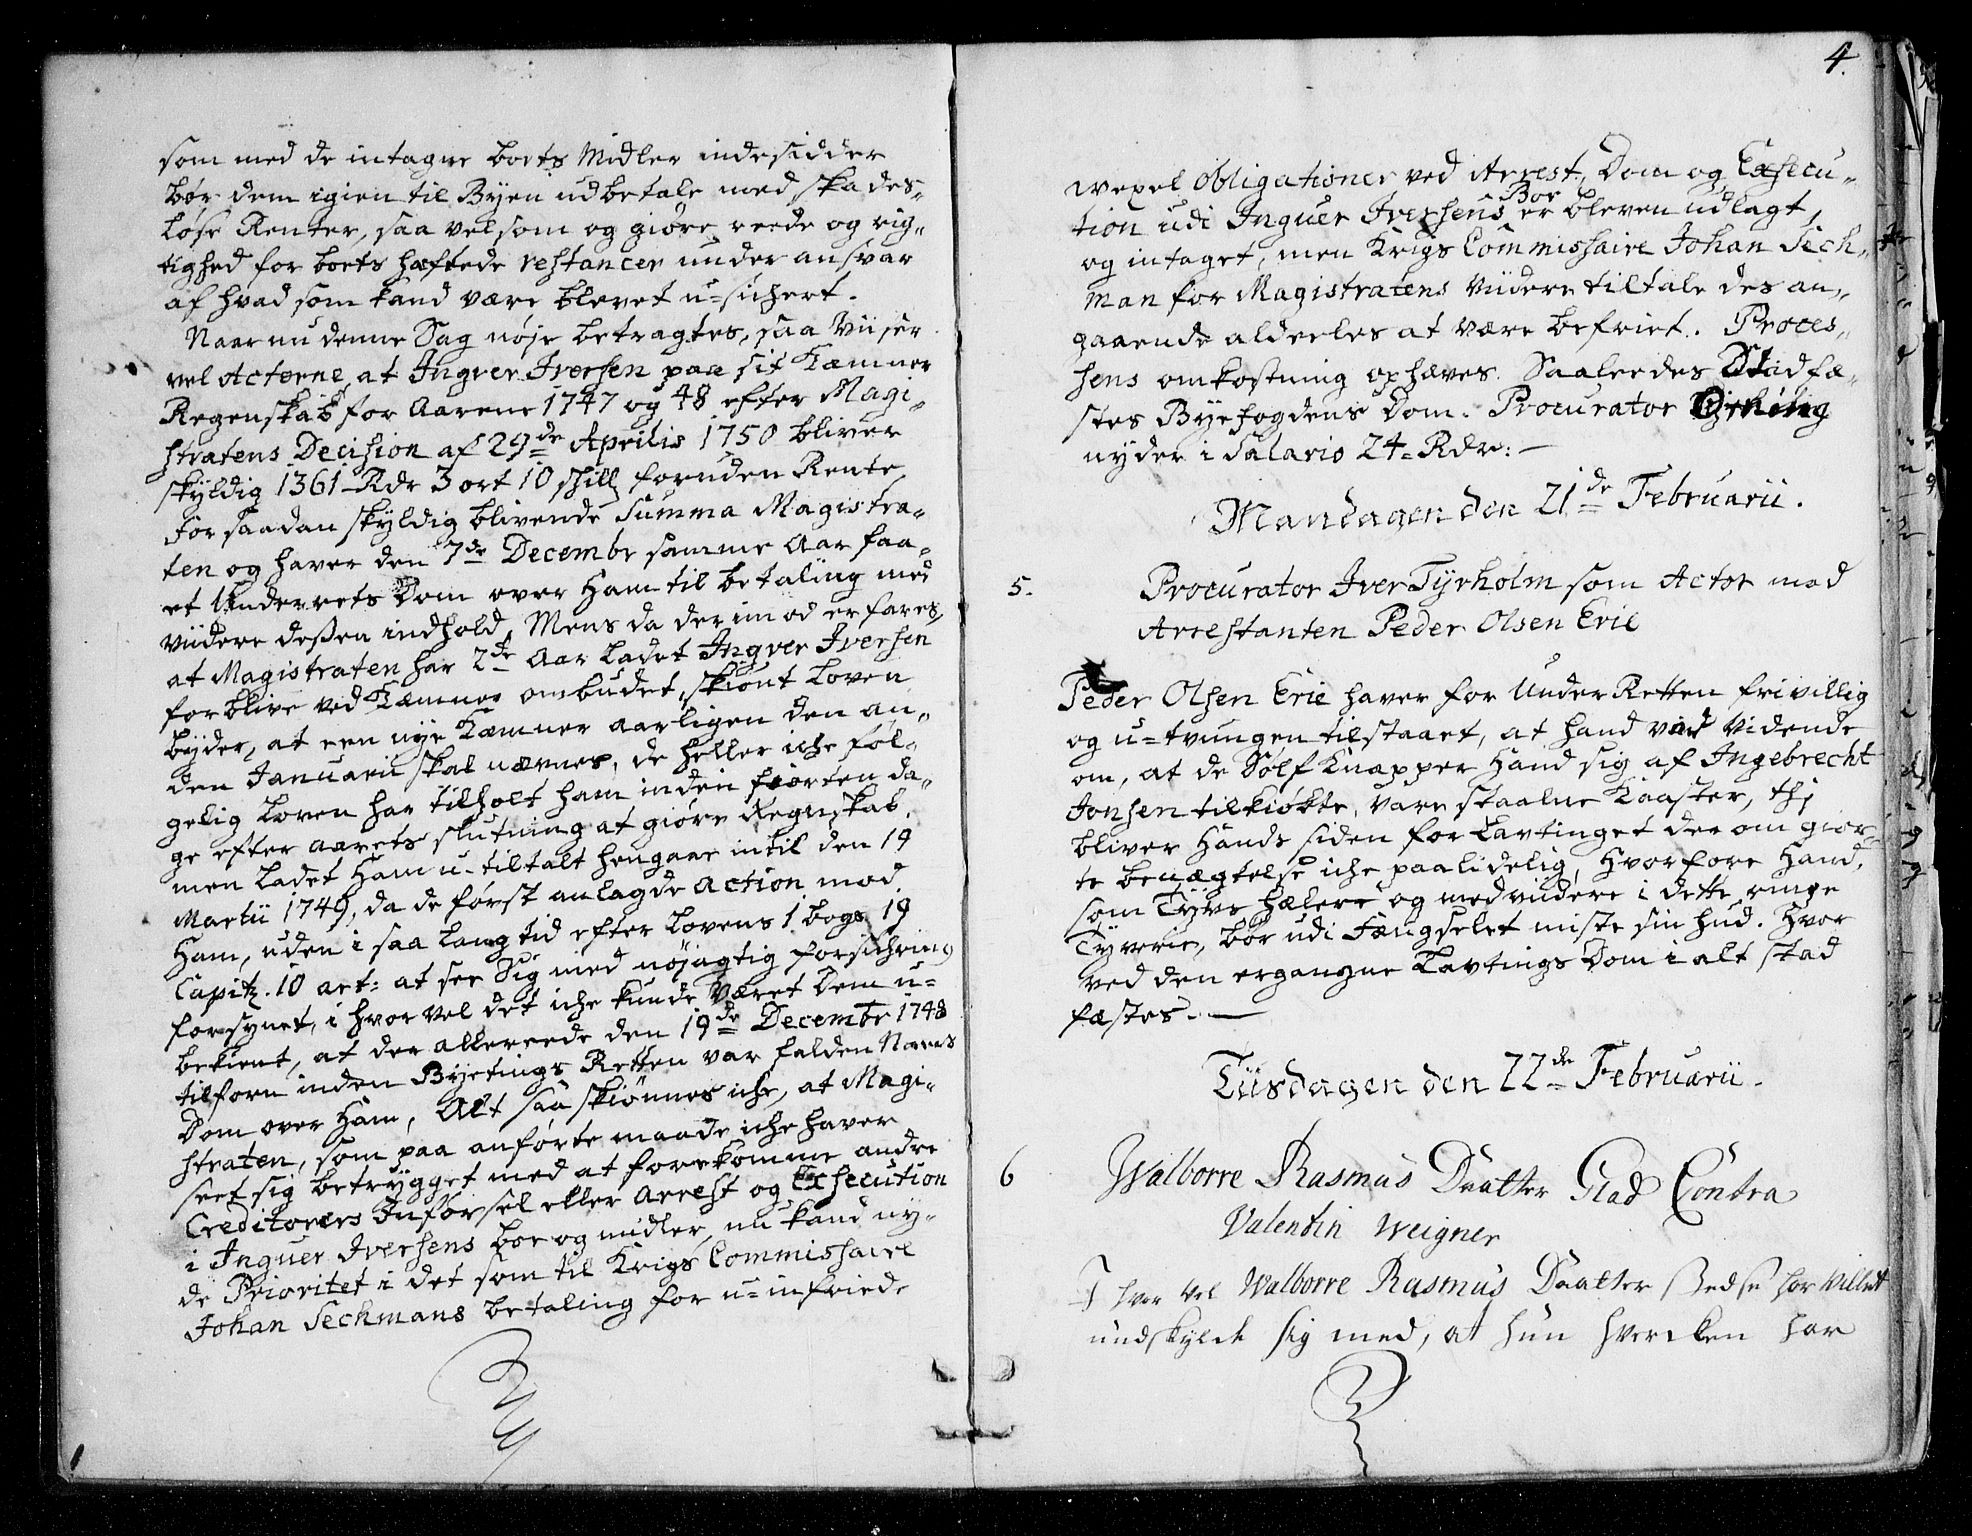 som med de intagne boets Midler indesidder
bør dem igien til Byen udbetale med skades-
løse Renter, saa vel som og giøre reede og rig-
tighed for boets hæftede restancer under ansvar
af hvad som kand være blevet u-sichert.
Naar nu denne Sag nøje betragtes, saa Viiser
vel Acterne, at Ingver Iversen paa sit Kæmner
Regenskab for Aarene 1747 og 48 efter Magi-
stratens Decision af 29de Aprilis 1750 bliver
skyldig 1361 Rdr 3 ort 10 skill foruden Rente
For saadan skyldig blivende Summa Magistra-
ten og haver den 7de Decembr samme Aar faa-
et Underrets Dom over Ham til betaling med
viidere deßen indhold, Mens da derimod erfares,
at Magistraten har 2de Aar ladet Ingver Iversen
forblive ved Kæmner ombudet, skiønt Loven
byder, at een nye Kæmner aarligen den an-
den Januarii skal nævnes, de heller iche føl-
gelig Loven har tilholt ham inden fiorten da-
ge efter aarets slutning at giøre Regnskab,
men ladet Ham u-tiltalt hengaae intil den 19
Martii 1749, da de først anlagde Action mod
Ham, uden i saa lang tid efter Lovens 1 bogs 19
Capitz. 10 art: at see Sig med nøjagtig forsichring
forsynet, i hvor vel det iche kunde Været Dem u-
bekient, at der allereede den 19de Decembr 1748
tilforn inden Byetings Retten var falden Nams
Dom over Ham, Alt saa skiønnes iche, at Magi-
straten, som paa anførte maade iche haver
seet sig betrygget med at forekomme andre
Creditorers Indførsel eller Arrest og Execution
i Inguer Iversens boe og midler, nu kand ny-
de Prioritet i det som til Krigs Commissaire
Johan Sechmans betaling for u-infriede
4.
wexel obligationer ved Arrest, Dom og Execu-
tion udi Inguer Iversens Boe er bleven udlagt
og intaget, men Krigs Commissaire Johan Sech-
man for Magistratens Viidere tiltale des an-
gaaende aldeeles at være befriet. Proces-
sens omkostning ophæves. Saaleedes Stadfæ-
stes Byefogdens Dom. Procurator
nyder i Salario 24 Rdr:
Mandagen den 21de Februarii.
5.
Procurator Iver Tyrholm som Actor mod
Arrestanten Peder Olsen Erie
Peder Olsen Erie haver for Under Retten frivillig
og u-tvungen tilstaaet, at hand var Vidende
om, at de Sølf Knapper Hand sig af Ingebrecht
Jonsen tilkiøbte, vare staalne Kaaster, thi
bliver Hands siden for Lavtinget der om gior-
te benægtelse iche paalidelig, Hvorfore Hand,
som Tyvs hælere og medvidere i dette ringe
Tyverie, bør udi Fængselet miste sin hud. Hvor
ved den ergangne Lavtings Dom i alt stad
fæstes.
Tiisdagen den 22de Februarii.
6
Walborre Rasmus Daatter Glad Contra
Valentin Weigner
I hvor vel Walborre Rasmus Daatter stedse har villet
undskylde sig med, at hun hvercken har